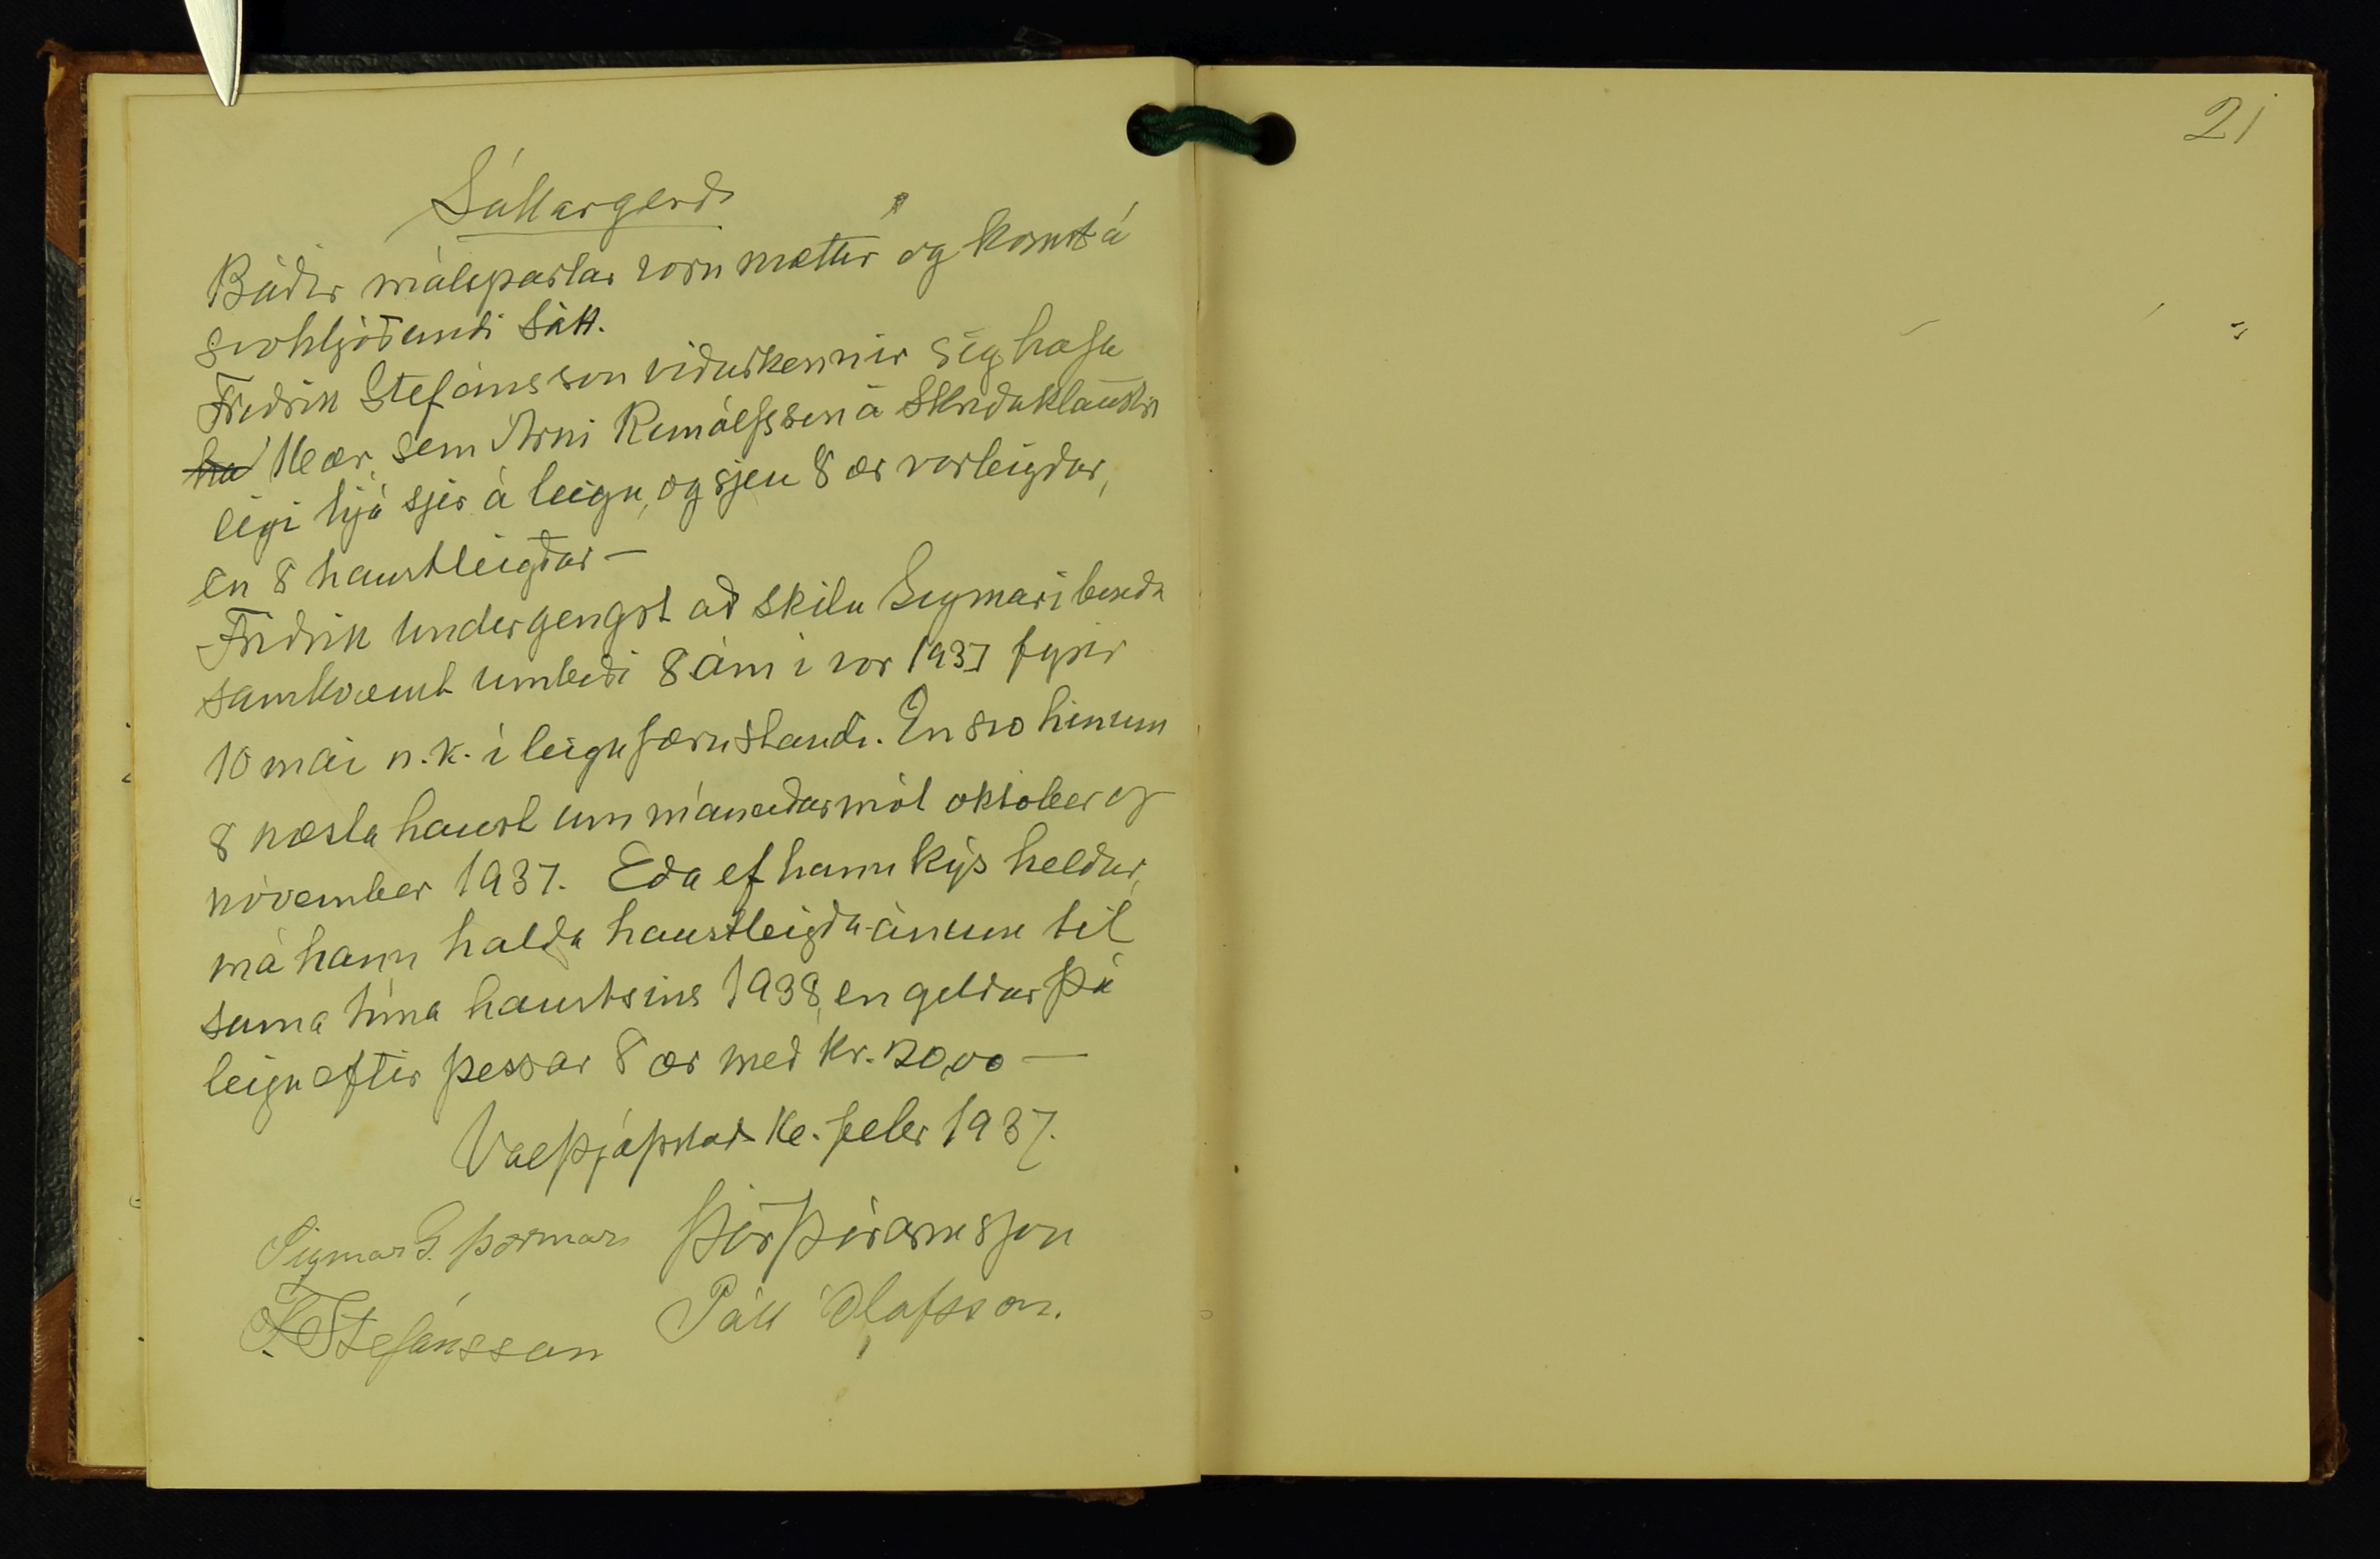 21
Sáttargerð
Báðir málspartar voru mættir og komst á
svohljóðandi sátt.
Friðrik Stefánsson viðurkennir sig hafa
ha 16 ær, sem Árni Runólfsson á Skriðuklaustri
eigi hjá sjer á leigu, og sjeu 8 ær vorleigðar,
en 8 haustleigðar —
Friðrik undirgengst að skila Sigmari bónda
samkvæmt umboði 8 ám í vor 1937 fyrir
10 maí n.k. í leigufæru standi. En svo hinum
8 næsta haust um mánaðarmót október og
nóvember 1937. Eða ef hann kýs heldur,
má hann halda haustleigðu ánum til
sama tíma haustsins 1938, en geldur þá
leigu eftir þessar 8 ær með kr. 20,00 —
Valþjófsstað 16. febr 1937.
Sigmar G. Þormar Þór Þórarinsson
F. Stefánsson Páll Ólafsson.